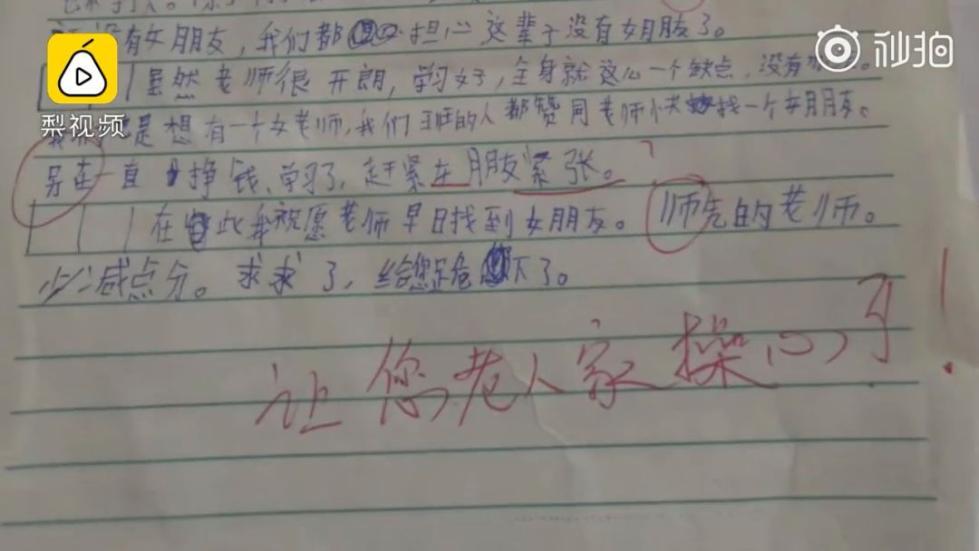 没有女朋友，我们都担心这辈子没有女朋友了。
虽然老师很开朗，学习好，全身就这么一个缺点，没有
是想有一个女老师，我们班的人都赞同老师快找一个女朋友。
另在一直挣钱、学习了，赶紧在朋友紧张。
在此我祝愿老师早日找到女朋友。师皃的老师。
少减点分。求求了，给您跪下了。
让您老人家操心了！
梨视频
秒拍